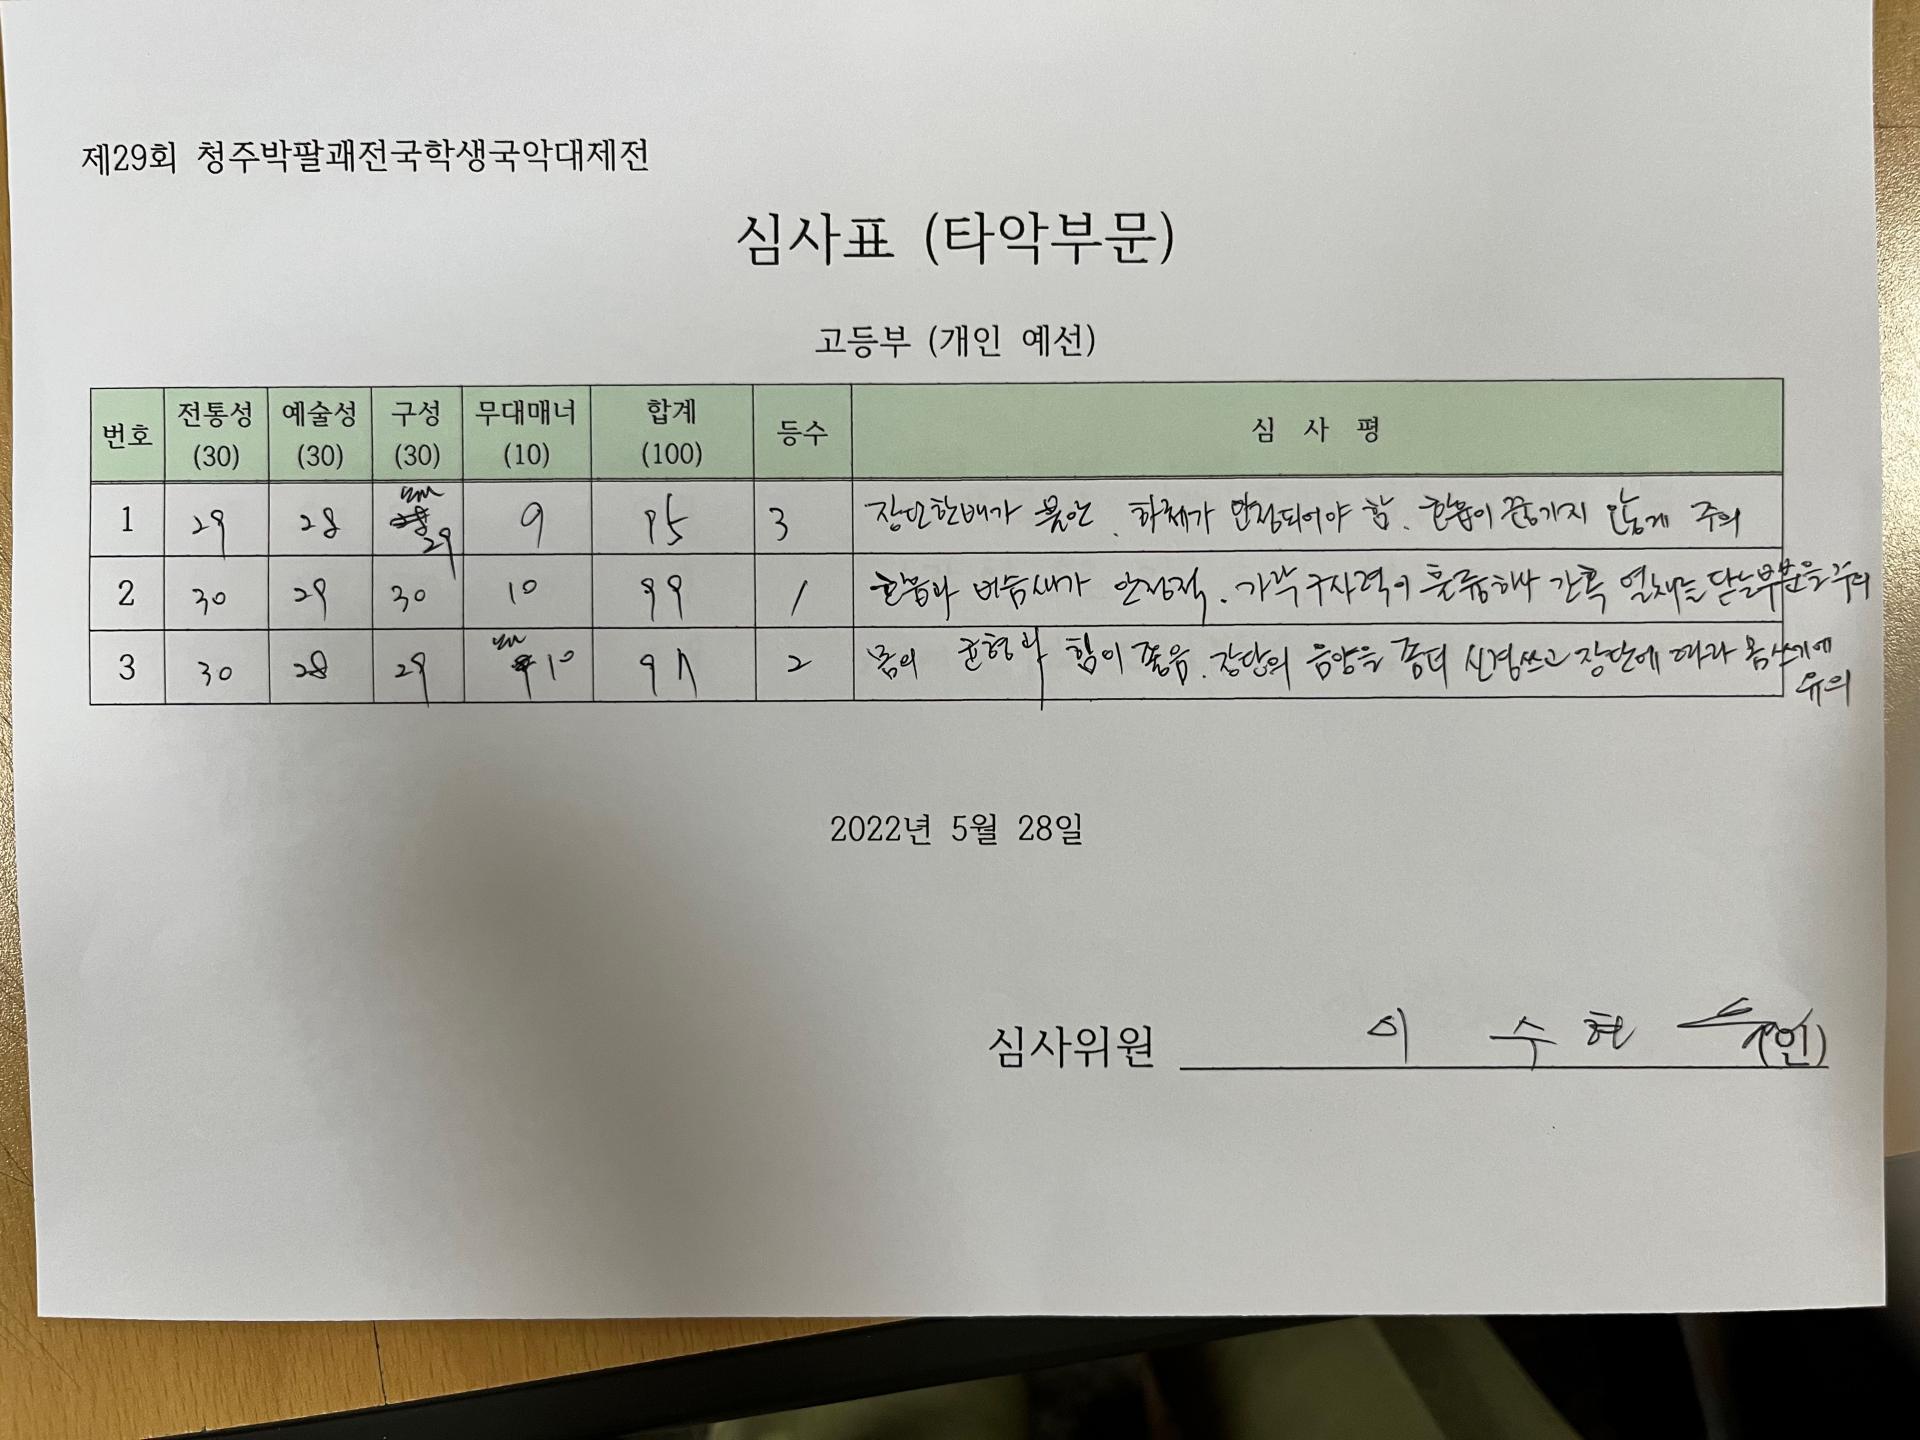 제29회 청주박팔괘전국학생국악대제전
심사표 (타악부문)
고등부 (개인 예선)
번호 전통성 (30) 예술성 (30) 구성 (30) 무대매너 (10) 합계 (100) 등수 심 사 평
1 29 28 29 9 95 3 장단한배가 불안. 하체가 안정되어야 함. 호흡이 끊기지 않게 주의
2 30 29 30 10 99 1 호흡과 버슴새가 안정적. 가락구사력이 훌륭하나 간혹 열채를 닫는부분을 주의
3 30 28 29 10 97 2 몸의 균형과 힘이 좋음. 장단의 음양을 좀더 신경쓰고 장단에 따라 몸쓰기에
유의
2022년 5월 28일
심사위원 이 수 현 (인)